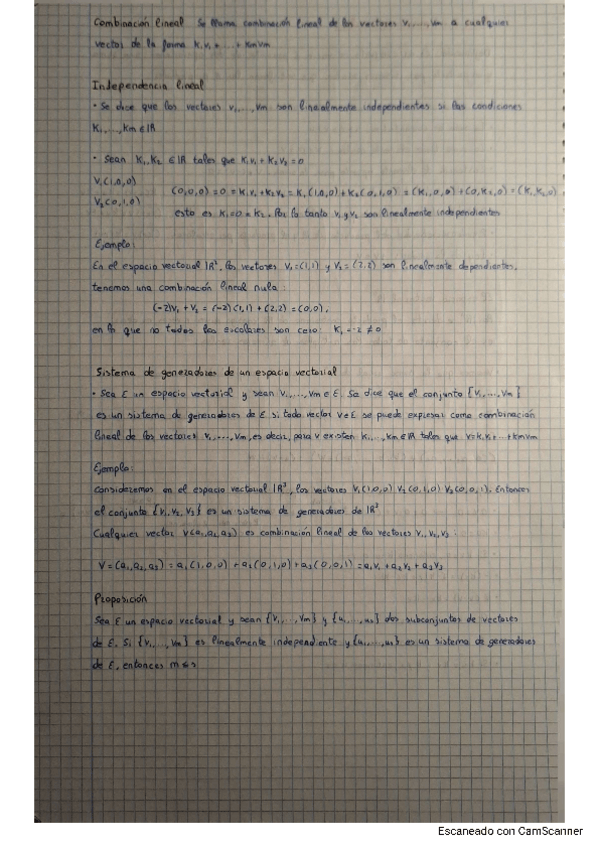 Combinación lineal Se llama combinación lineal de los vectores v₁,...,vm a cualquier
vector de la forma k₁v₁ + ... + kmvm
Independencia lineal
• Se dice que los vectores v₁,...,vm son linealmente independientes si las condiciones
K₁,...,km ∈ IR
• Sean K₁,K₂ ∈ IR tales que K₁v₁ + K₂v₂ = 0
V₁(1,0,0)
V₂(0,1,0)
(0,0,0) = 0 = K₁v₁ + K₂v₂ = K₁(1,0,0) + K₂(0,1,0) = (K₁,0,0) + (0,K₂,0) = (K₁,K₂,0)
esto es K₁ = 0 = K₂. Por lo tanto v₁ y v₂ son linealmente independientes
Ejemplo:
En el espacio vectorial IR², los vectores V₁=(1,1) y V₂=(2,2) son linealmente dependientes,
tenemos una combinación lineal nula:
(-2)V₁ + V₂ = (-2)(1,1) + (2,2) = (0,0),
en la que no todos los escolares son cero: K₁ = -2 ≠ 0
Sistema de generadores de un espacio vectorial
• Sea E un espacio vectorial y sean V₁,...,Vm ∈ E. Se dice que el conjunto {V₁,...,Vm}
es un sistema de generadores de E si todo vector V∈E se puede expresar como combinación
lineal de los vectores v₁,...,Vm, es decir, para v existen K₁,...,Km∈IR tales que V=K₁V₁+...+kmvm
Ejemplo:
Consideremos en el espacio vectorial IR³, los vectores V₁(1,0,0) V₂(0,1,0) V₃(0,0,1). Entonces
el conjunto {V₁,V₂,V₃} es un sistema de generadores de IR³
Cualquier vector V(a₁,a₂,a₃) es combinación lineal de los vectores V₁,V₂,V₃:
V=(a₁,a₂,a₃) = a₁(1,0,0) + a₂(0,1,0) + a₃(0,0,1) = a₁V₁ + a₂V₂ + a₃V₃
Proposición
Sea E un espacio vectorial y sean {V₁,...,Vm} y {u₁,...,us} dos subconjuntos de vectores
de E. Si {V₁,...,Vm} es linealmente independiente y {u₁,...,us} es un sistema de generadores
de E, entonces m ≤ s
Escaneado con CamScanner